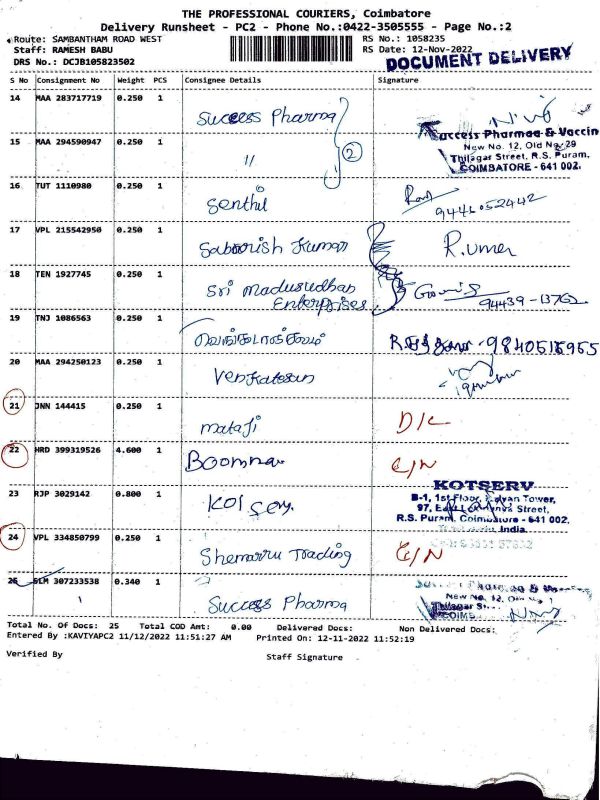 THE PROFESSIONAL COURIERS, Coimbatore
Delivery Runsheet - PC2 - Phone No.:0422-3505555 - Page No.:2
Route: SAMBANTHAM ROAD WEST
RS No.: 1058235
Staff: RAMESH BABU
RS Date: 12-Nov-2022
DRS No.: DCJB105823502
DOCUMENT DELIVERY
S No Consignment No Weight PCS Consignee Details Signature
14 MAA 283717719 0.250 1 Success Pharma
15 MAA 294590947 0.250 1 "
2
Success Pharmaa & Vaccin
New No. 12, Old No. 29
Thilagar Street, R.S. Puram,
COIMBATORE - 641 002.
16 TUT 1110980 0.250 1 Senthil
9446052442
17 VPL 215542950 0.250 1 Saboorish Kumar R.umer
18 TEN 1927745 0.250 1 Sri Madusudhan
Enterprises
19 TNJ 1086563 0.250 1
20 MAA 294250123 0.250 1 Venkatesan
21 JNN 144415 0.250 1 mataji D/L
22 HRD 399319526 4.600 1 Boomna
23 RJP 3029142 0.800 1 KOI Serv.
KOTSERV
B-1, 1st Floor, Kalyan Tower,
97, East Street,
R.S. Puram, Coimbatore - 641 002.
India.
24 VPL 334850799 0.250 1 Shemarru Trading
25 SLM 307233538 0.340 1 Success Pharma
New No. 12, Old
Thilagar
Total No. Of Docs: 25 Total COD Amt: 0.00 Delivered Docs: Non Delivered Docs:
Entered By :KAVIYAPC2 11/12/2022 11:51:27 AM Printed On: 12-11-2022 11:52:19
Verified By Staff Signature